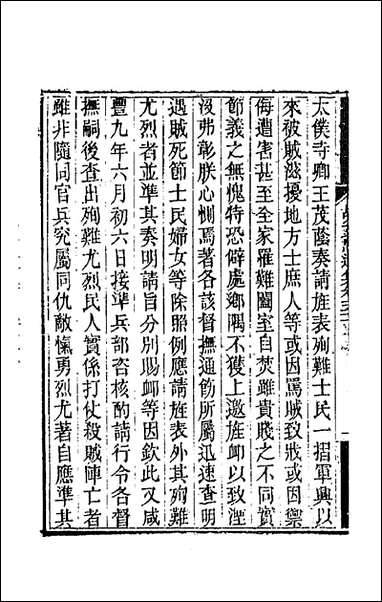 太僕寺卿王茂蔭奏請旌表殉難士民一摺軍興以
來被賊滋擾地方士庶人等或因罵賊致戕或因禦
侮遭害甚至全家罹難闔室自焚雖貴賤之不同實
節義之無愧特恐僻處鄉隅不獲上邀旌卹以致湮
沒弗彰朕心惻焉著各該督撫通飭所屬迅速查明
遇賊死節士民婦女等除照例應請旌表外其殉難
尤烈者並準其奏明請旨分別賜卹等因欽此又咸
豐九年六月初六日接準兵部咨核酌請行令各督
撫嗣後查出殉難尤烈民人實係打仗殺賊陣亡者
雖非隨同官兵究屬同仇敵愾勇烈尤著自應準其